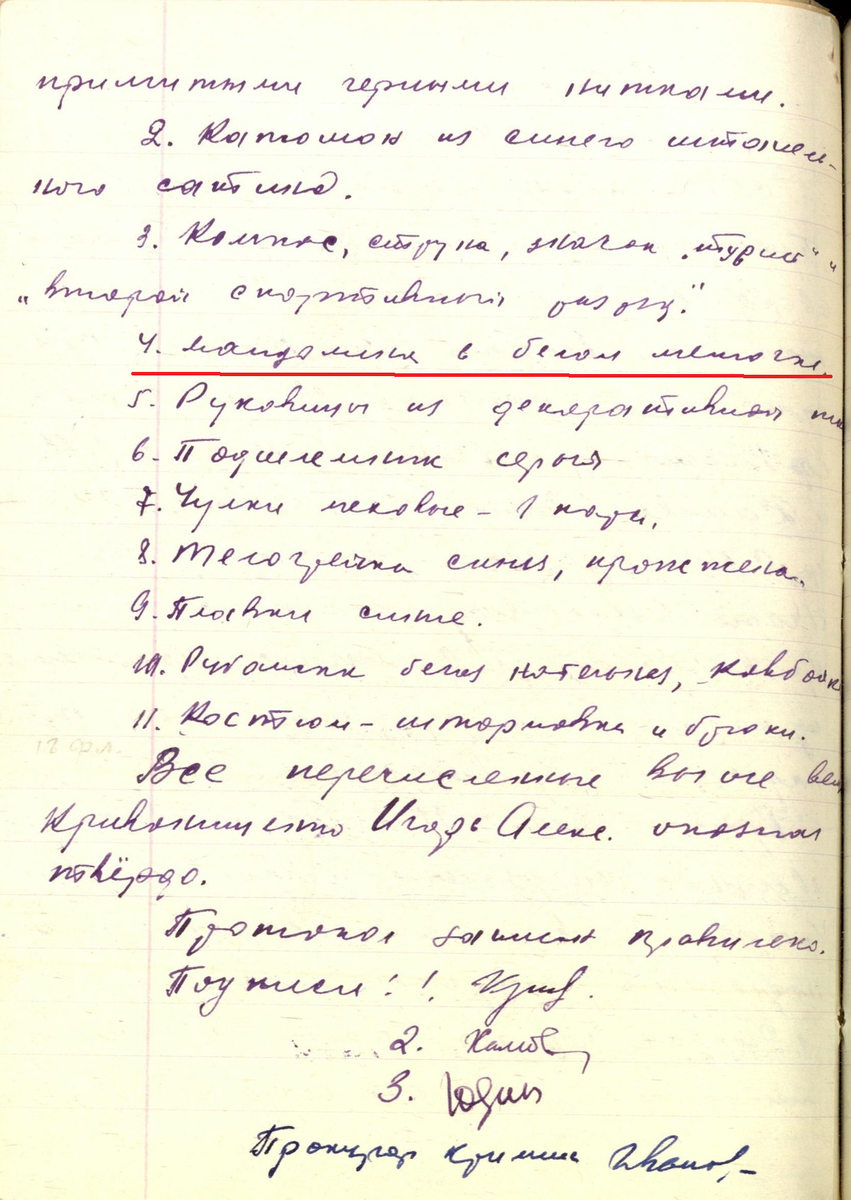 пришитыми черными нитками.
2. Капюшон из синего штапель-
ного сатина.
3. Компас, струна, значок „турист" и
„второй спортивный разряд".
4. Мандолина в белом мешочке.
5. Рукавицы из декоративной тк
6. Подшлемник серый
7. Чулки меховые - 1 пара.
8. Телогрейка синяя, прожжена.
9. Плавки синие.
10. Рубашка белая нательная, ковбойк
11. Костюм - штормовка и брюки.
Все перечисленные выше вещ
Кривонищенко Игорь Алекс. опознал
твёрдо.
Протокол записан правильно.
Подписи: 1. Крив.
2.
3. Юдин
Прокурор кримин Иванов